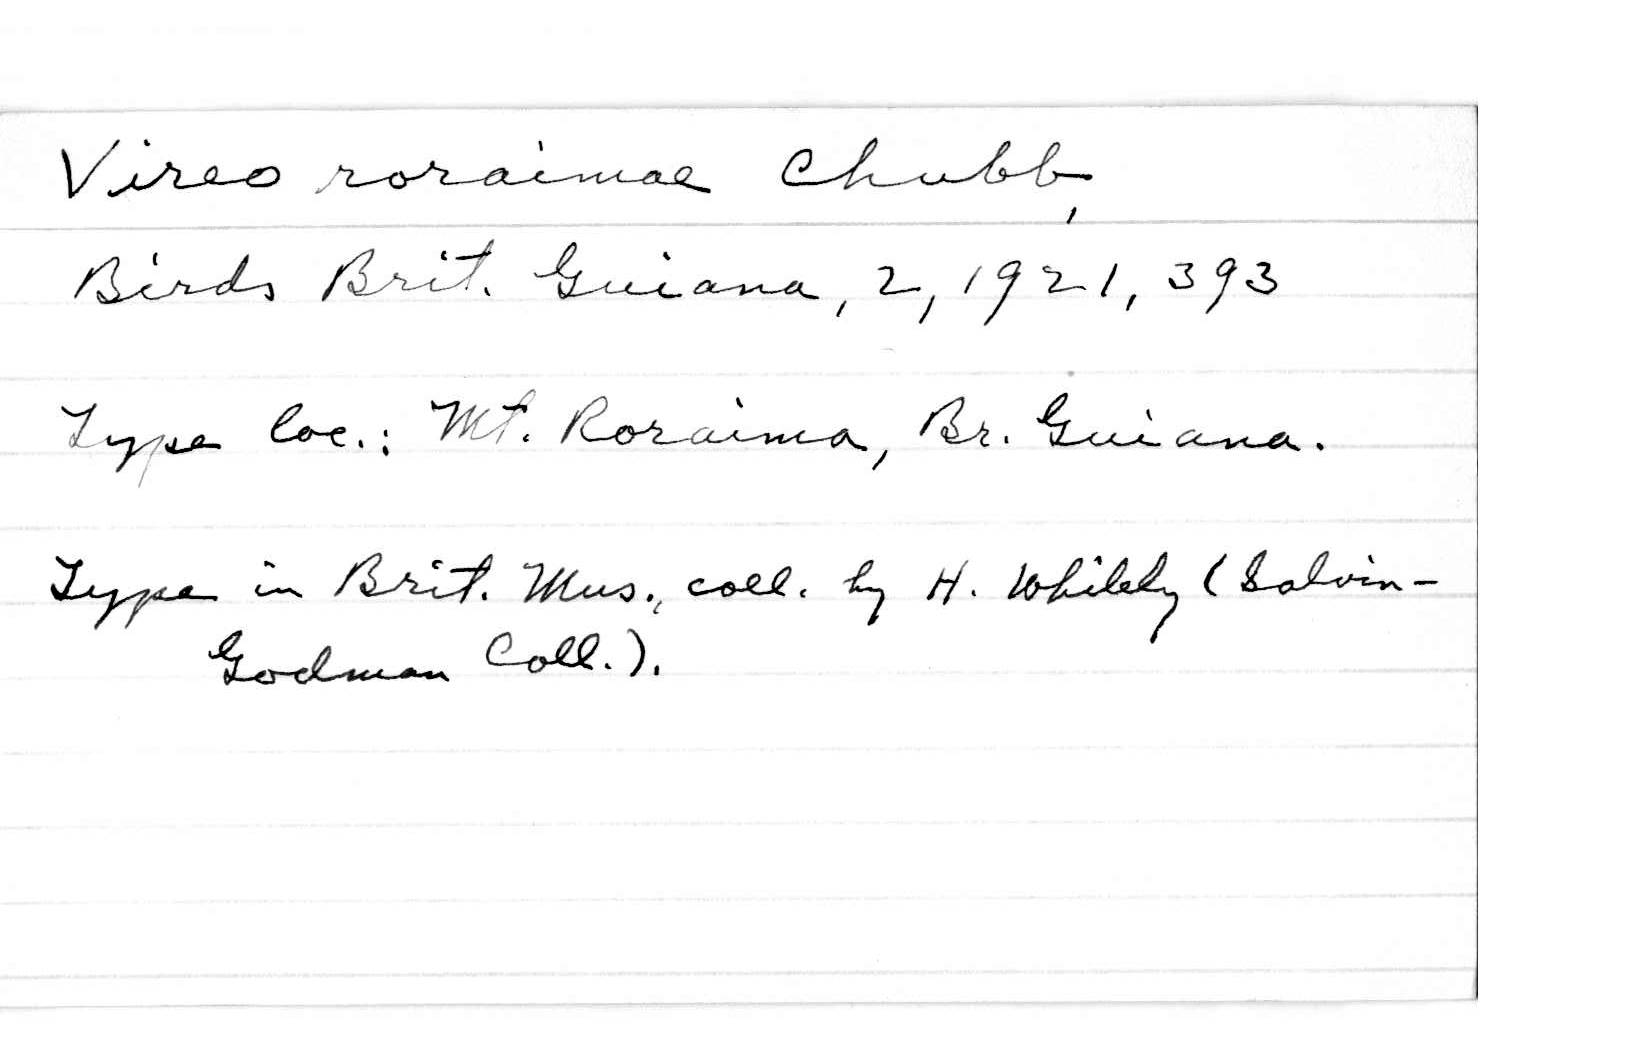 Vireo roraimae Chubb,
Birds Brit. Guiana, 2, 1921, 393
Type loc.: Mt. Roraima, Br. Guiana.
Type in Brit. Mus., coll. by H. Whitely (Salvin-
Godman Coll.).